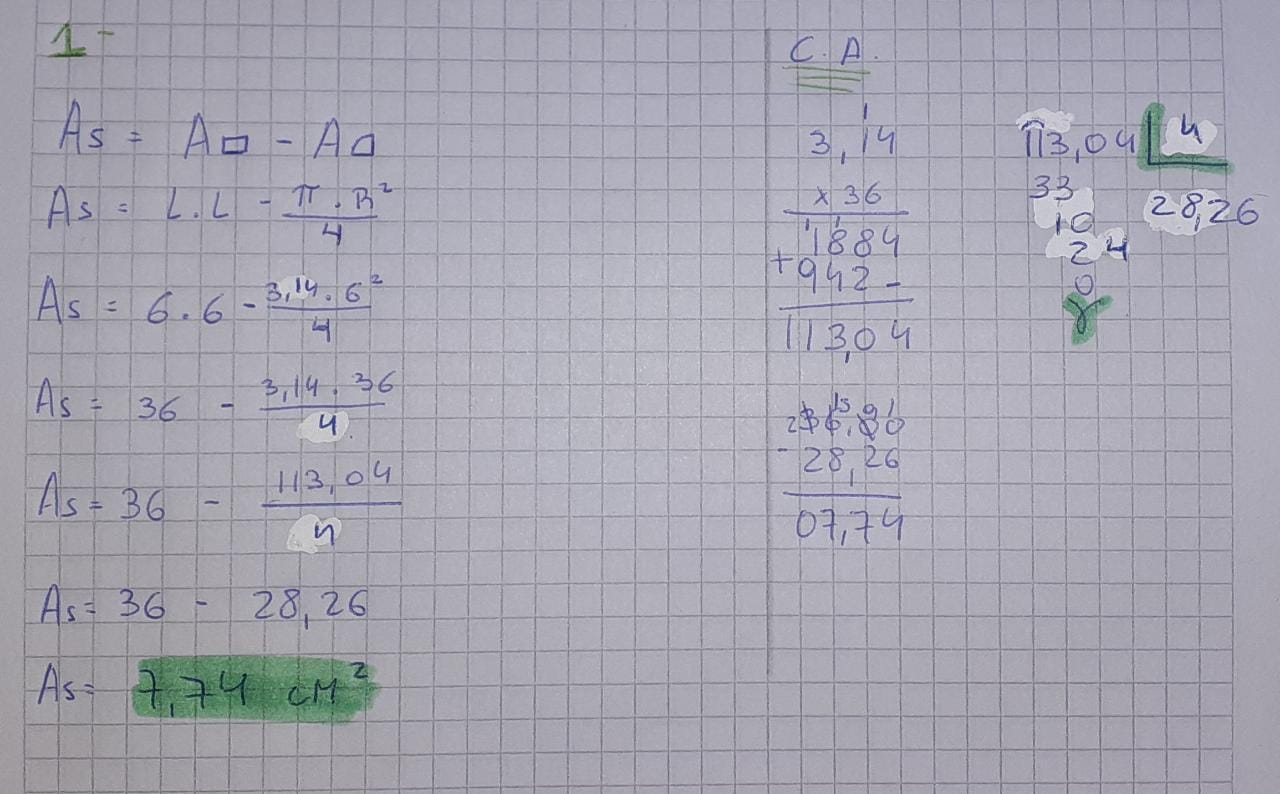 1-
As = A□ - A▱
As = L.L - π.R²/4
As = 6.6 - 3,14.6²/4
As = 36 - 3,14.36/4
As = 36 - 113,04/4
As = 36 - 28,26
As = 7,74 cm²
C.A.
1
3,14
x 36
1884
+942-
113,04
36,00
-28,26
07,74
113,04 4
33 28,26
10
24
0